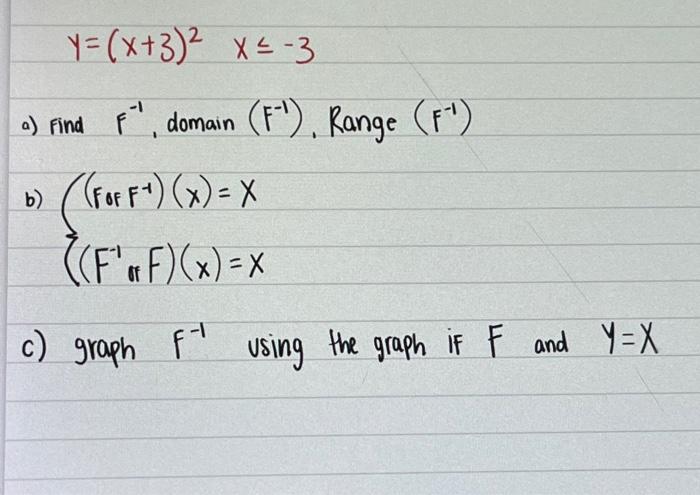 Y=(x+3)² x≤-3
a) Find F⁻¹, domain (F⁻¹), Range (F⁻¹)
b) ((F of F⁻¹)(x)=X
((F⁻¹ of F)(x)=X
c) graph F⁻¹ using the graph if F and Y=X